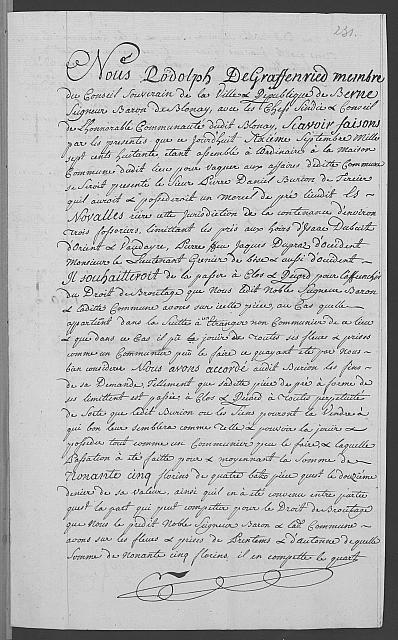 231.
Nous Rodolph DeGraffenried membre
du Conseil Souverain de la Ville & Republique de Berne
Seigneur Baron de Blonay, avec les Chefs Sindic & Conseil
de L'honnorable Communauté dudit Blonay, Scavoir faisons
par les presentes que ce jourd'huit Sixieme Septembre Mille
sept cents huitante etant assemblé à l'ordinaire à la maison
Commune dudit lieu pour vaquer aux affaires de ladite Commune
se seroit presenté le Sieur Pierre Daniel Burion de
qui auroit & possederoit un morcel de pré lieudit Es
Novalles riere cette Jurisdiction de la contenance d'environ
trois fossoriers, limittant les prés aux hoirs d'Isaac
d'Orient & Vaudaire, Pierre feu Jaques Dupraz d'occident
Monsieur le Lieutenant Genier de bise & aussi d'occident
Il souhaitteroit de la passer à Clos & Record pour l'affranchir
du Droit de Broutage que Nous ledit Noble Seigneur Baron
& ladite Commune avons sur cette pièce, au Cas quelle
appartient dans la Suitte à un Etranger non Communier de ce lieu
& que dans ce Cas il pût la jouir de toutes ses fleurs & prises
comme un Communier peu le faire ce quayant eté par Nous
bien considéré Nous avons accordé audit Burion les fins
de sa Demande Tellement que saditte pièce de pré à forme de
ses limittes est passée à Clos & Record à toute perpetuité
de Sorte que ledit Burion ou les Siens pourront la Vendre à
qui bon leur semblera comme telle & pouvoir la jouir &
posseder tout comme un Communier peu le faire, & laquelle
Passation à eté faitte pour & moyennant la Somme de
nonante cinq florins de quatre batz pièce qu'est le douzième
denier de sa valeur, ainsi quil en à eté convenu entre partie
quest la part qui peut competter pour le Droit de Broutage
que Nous le predit Noble Seigneur Baron & lad. Commune
avons sur les fleurs & prises de Printems & d'automne de quelle
Somme de nonante cinq florins, il en compette le quart